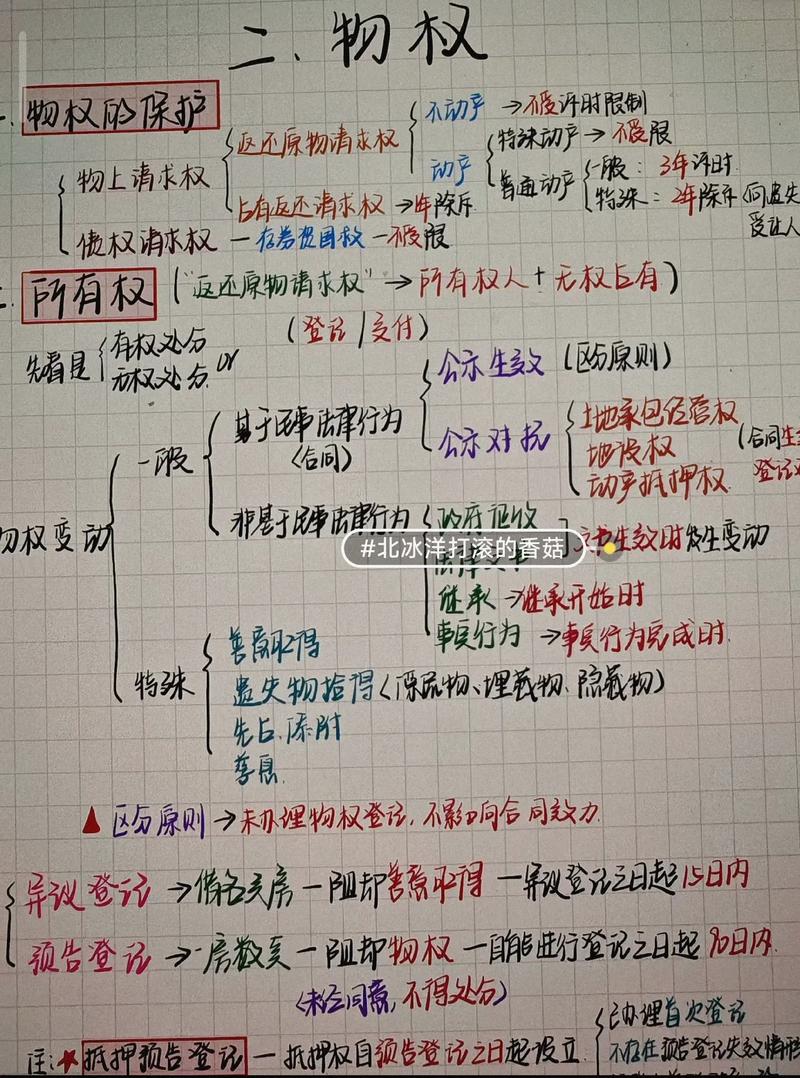 二、物权
物权的保护
物上请求权
返还原物请求权
不动产 → 不受诉时限制
动产
特殊动产 → 不受限
普通动产
一般：3年诉时
特殊：2年除斥（向遗失
受让人
占有返还请求权 → 1年除斥
债权请求权 — 存券投国救 — 不受限
所有权（“返还原物请求权” → 所有权人 + 无权占有）
先看是
有权处分
无权处分 or
（登记/交付）
物权变动
一般
基于民事法律行为
（合同）
公示生效（区分原则）
公示对抗
土地承包经营权
地役权
动产抵押权
（合同生
登记
非基于民事法律行为
政府征收
#北冰洋打滚的香菇
生效时发生变动
继承 → 继承开始时
事实行为 → 事实行为完成时.
特殊
善意取得
遗失物拾得（漂流物、埋藏物、隐藏物）
先占.添附
孳息.
▲ 区分原则 → 未办理物权登记，不影响合同效力.
异议登记 → 借名买房 — 阻却善意取得 — 异议登记之日起15日内
预告登记 → 一房数卖 — 阻却物权 — 自能进行登记之日起90日内.
（未经同意，不得处分）
注：★抵押预告登记 — 抵押权自预告登记之日起设立
已办理首次登记
不存在预告登记失效情形